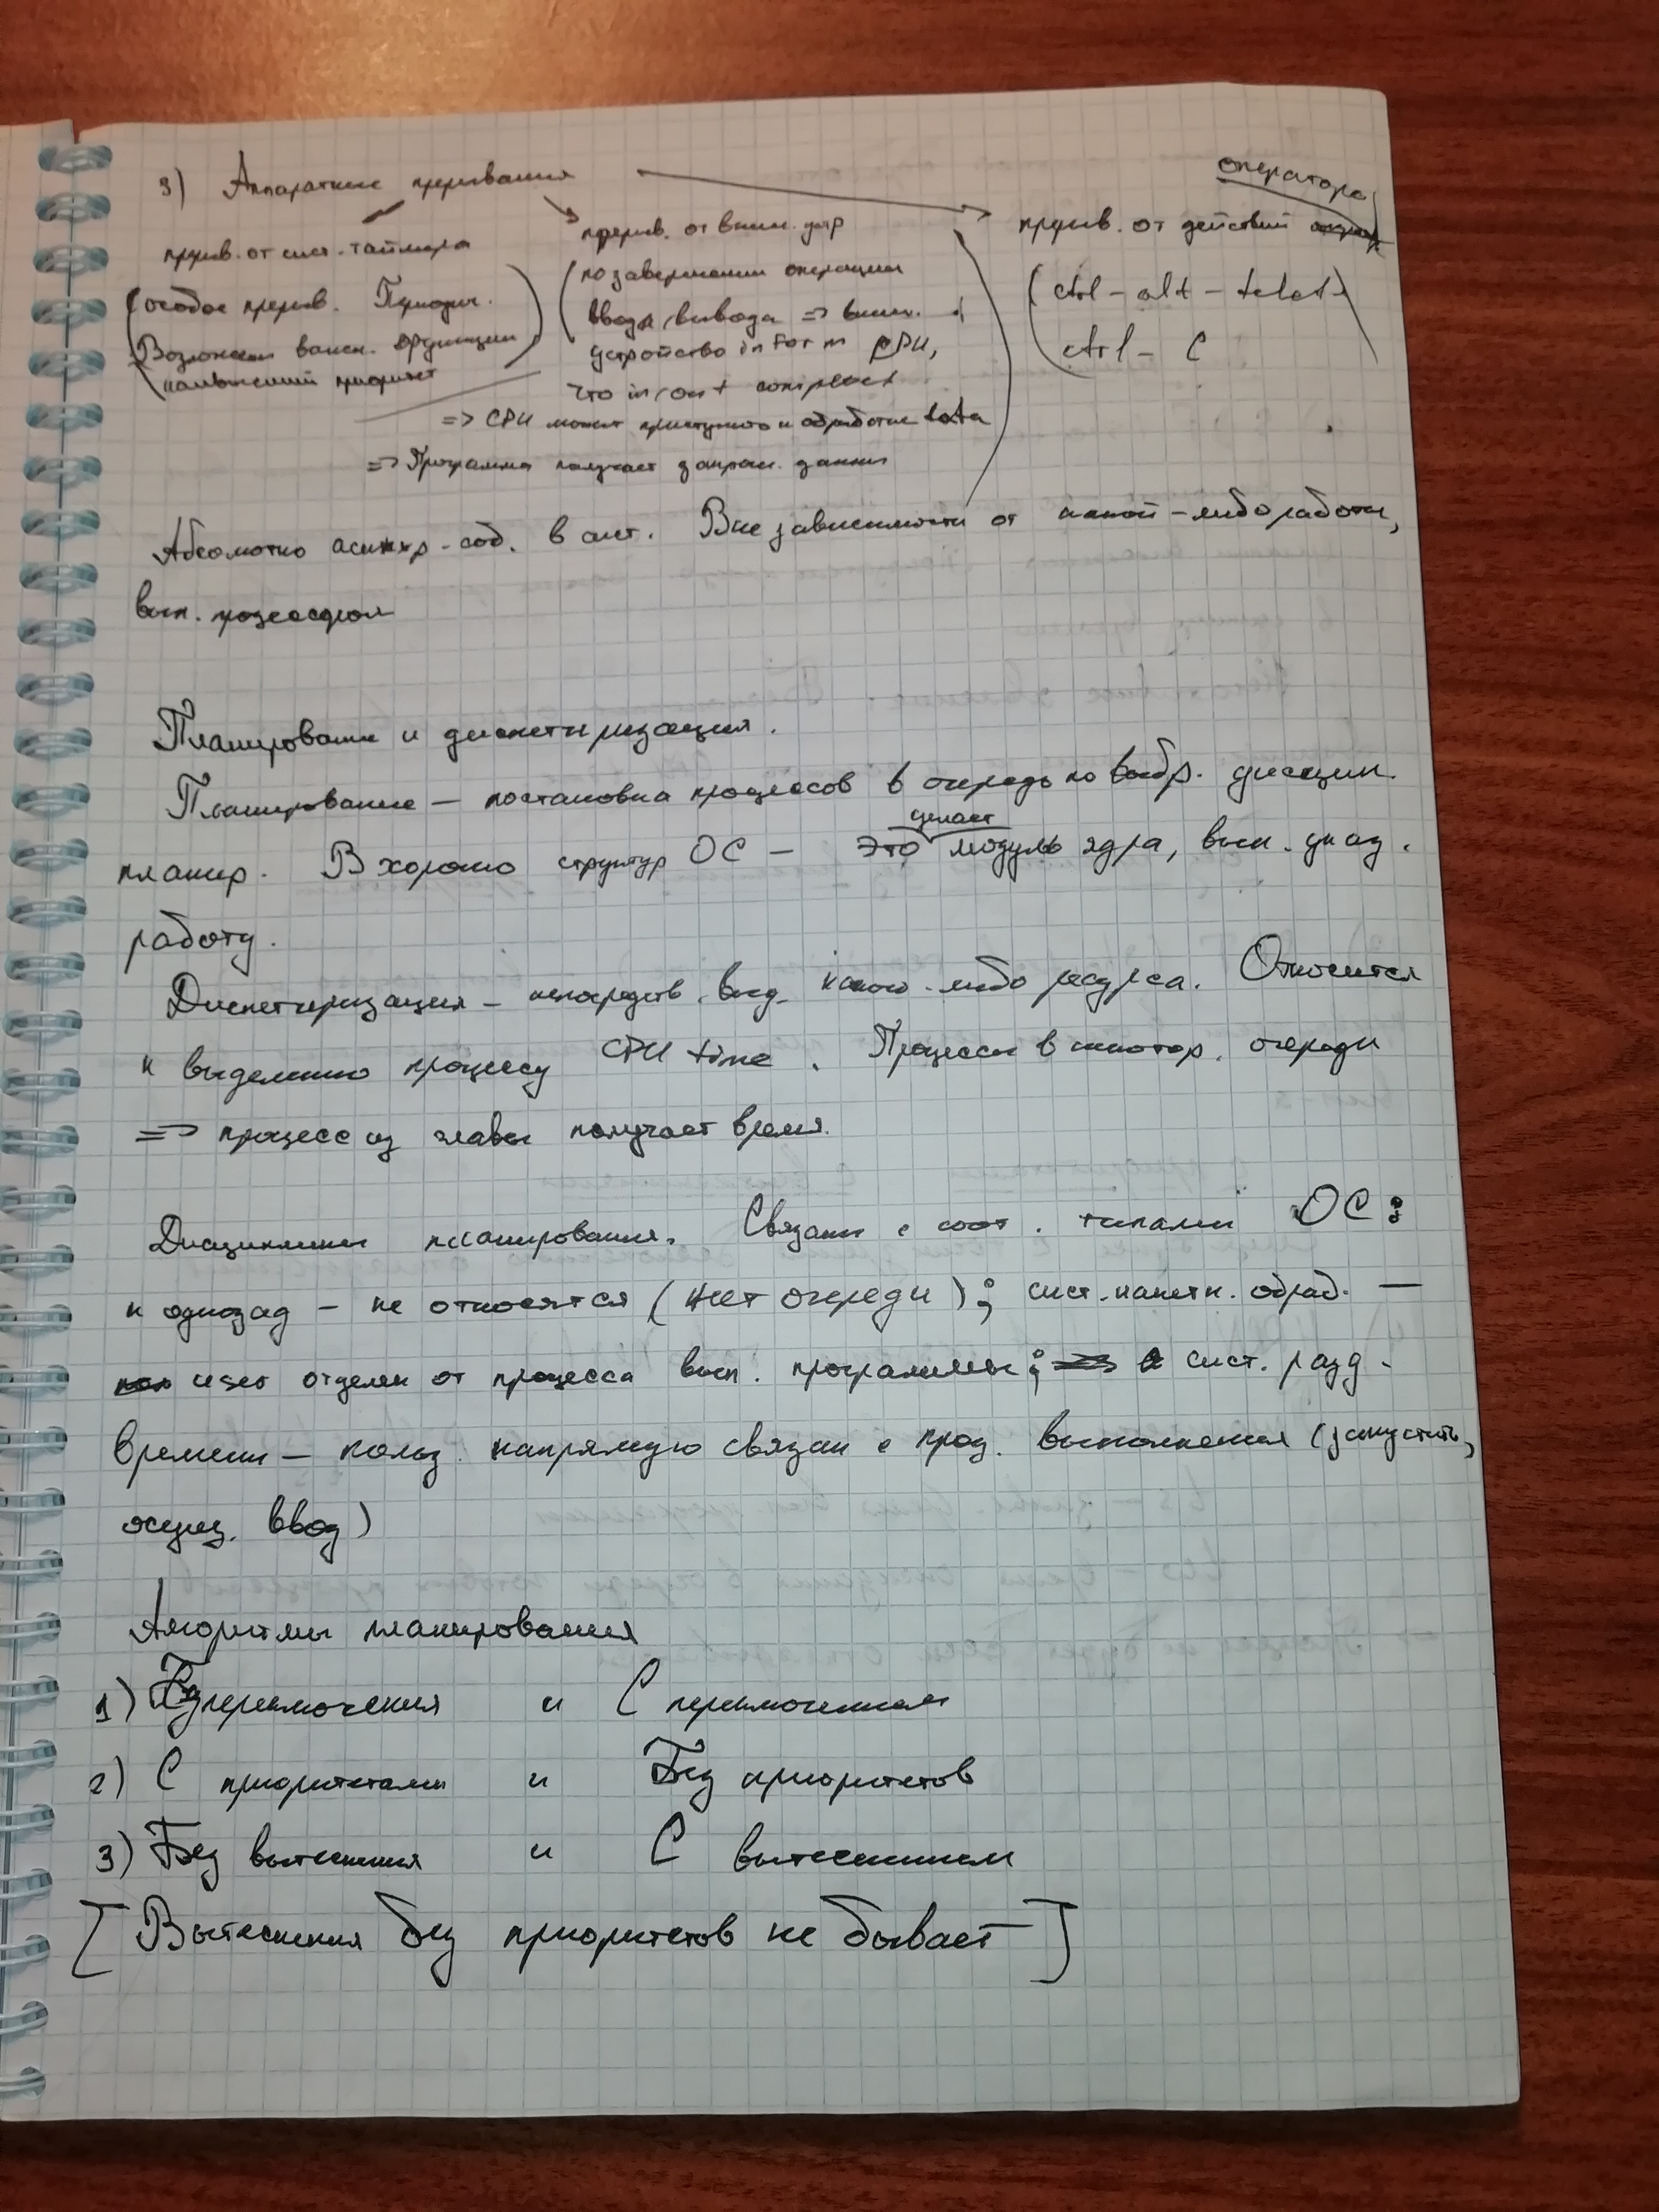 3) Аппаратные прерывания
прерыв. от сист. таймера
(особое прерыв. Периодич.
Возложены важн. функции
наивысший приоритет)
прерыв. от внеш. устр
(по завершении операции
ввода/вывода => внеш.
устройство inform CPU,
что in/out complect
=> CPU может приступить к обработке data
=> Программа получает запраш. данные)
оператора
прерыв. от действий
(ctrl-alt-
ctrl-C)
Абсолютно асинхр. соб. в сист. Вне зависимости от какой-либо работы,
вып. процессором
Планирование и диспетчеризация.
Планирование — постановка процессов в очередь по выбр. дисципл.
планир. В хорошо структур ОС — это делает модуль ядра, вып. указ.
работу.
Диспетчеризация — непосредств. выд. какого-либо ресурса. Относится
к выделению процессу CPU time. Процессы в некотор. очереди
=> процесс из главы получает время.
Дисциплины планирования. Связаны с соот. типами ОС:
к однозад — не относятся (нет очереди); сист. пакетн. обраб. —
user отделен от процесса вып. программы; сист. разд.
времени — польз. напрямую связан с проц. выполнения (запустить,
осущ. ввод)
Алгоритмы планирования
1) Без переключения и С переключением
2) С приоритетами и Без приоритетов
3) Без вытеснения и С вытеснением
[Вытеснения без приоритетов не бывает]